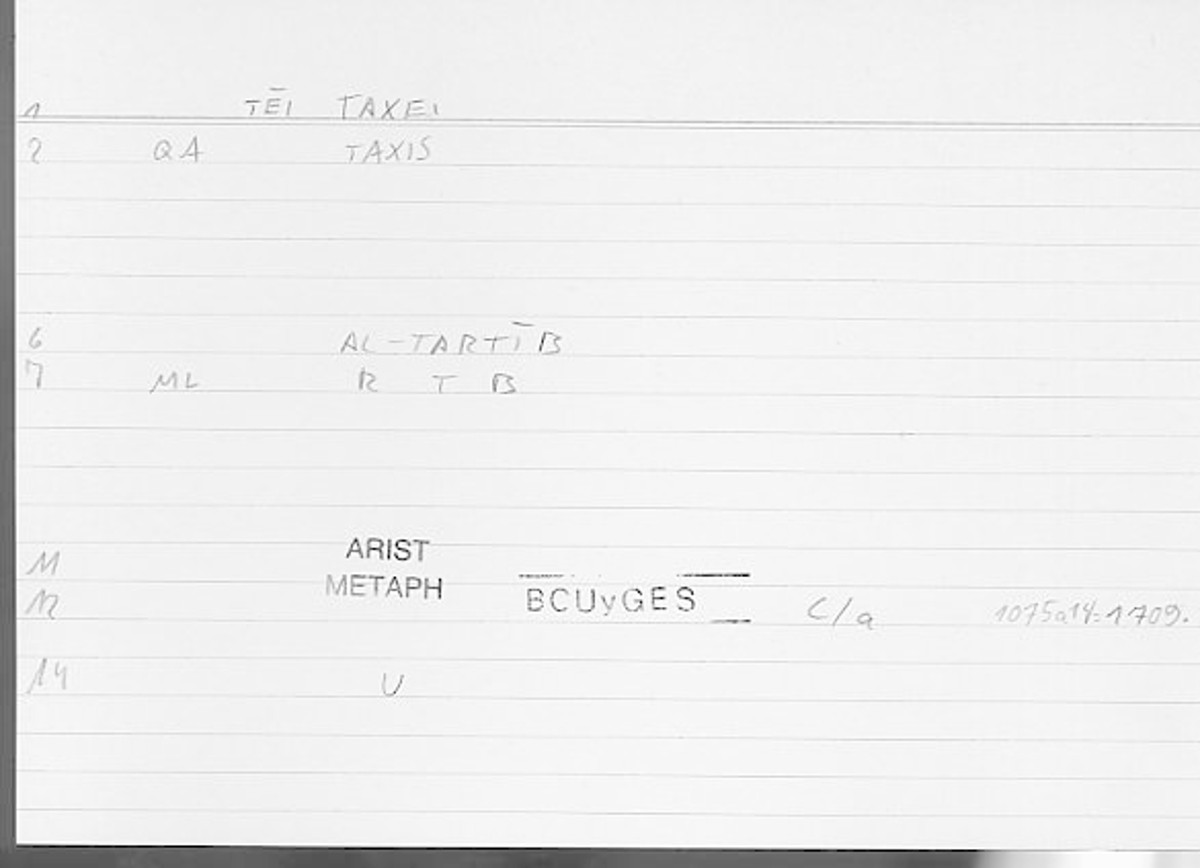 1 TĒI TAXEI
2 QA TAXIS
6 AL-TARTĪB
7 ML R T B
11 ARIST
METAPH
12 BCUyGES C/a 1075a14:1709.
14 U